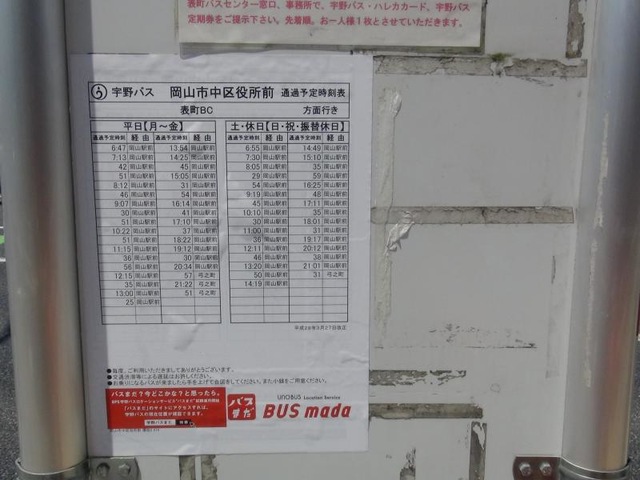 表町バスセンター窓口、事務所で、宇野バス・ハレカカード、宇野バス
定期券をご提示下さい。先着順。お一人様1枚とさせていただきます。
宇野バス 岡山市中区役所前 通過予定時刻表
表町BC 方面行き
平日【月～金】 土・休日【日・祝・振替休日】
通過予定時刻 経由 通過予定時刻 経由 通過予定時刻 経由 通過予定時刻 経由
6:47 岡山駅前 13:54 岡山駅前 6:55 岡山駅前 14:49 岡山駅前
7:13 岡山駅前 14:25 岡山駅前 7:30 岡山駅前 15:10 岡山駅前
42 岡山駅前 45 岡山駅前 8:05 岡山駅前 35 岡山駅前
51 岡山駅前 15:05 岡山駅前 29 岡山駅前 59 岡山駅前
8:12 岡山駅前 31 岡山駅前 54 岡山駅前 16:25 岡山駅前
46 岡山駅前 54 岡山駅前 9:19 岡山駅前 48 岡山駅前
9:07 岡山駅前 16:14 岡山駅前 45 岡山駅前 17:11 岡山駅前
30 岡山駅前 41 岡山駅前 10:10 岡山駅前 35 岡山駅前
51 岡山駅前 17:10 岡山駅前 30 岡山駅前 18:01 岡山駅前
10:22 岡山駅前 37 岡山駅前 11:00 岡山駅前 31 岡山駅前
51 岡山駅前 18:22 岡山駅前 36 岡山駅前 19:17 岡山駅前
11:15 岡山駅前 19:12 岡山駅前 12:11 岡山駅前 20:12 岡山駅前
36 岡山駅前 30 岡山駅前 46 岡山駅前 38 岡山駅前
56 岡山駅前 20:34 岡山駅前 13:20 岡山駅前 21:01 岡山駅前
12:15 岡山駅前 57 弓之町 50 岡山駅前 31 弓之町
35 岡山駅前 21:22 弓之町 14:19 岡山駅前
13:00 岡山駅前 51 弓之町
25 岡山駅前
平成28年3月27日改正
●毎度、ご利用いただきましてありがとうございます。
●交通渋滞等による遅延はお許しください。
●お乗りになるバスが来ましたら手を上げて合図をしてください。また小銭をご用意ください。
バスまだ？今どこかな？と思ったら。
「バスまだ」のサイトにアクセスすれば、
宇野バスの現在位置が確認できます。
宇野バスまだ 検索
バスまだ
UNOBUS Location Service
BUS mada